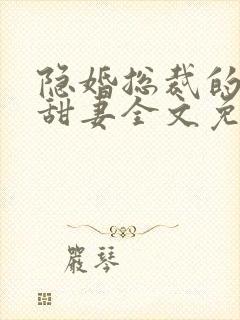 隐婚总裁的
甜妻全文免
嚴琴